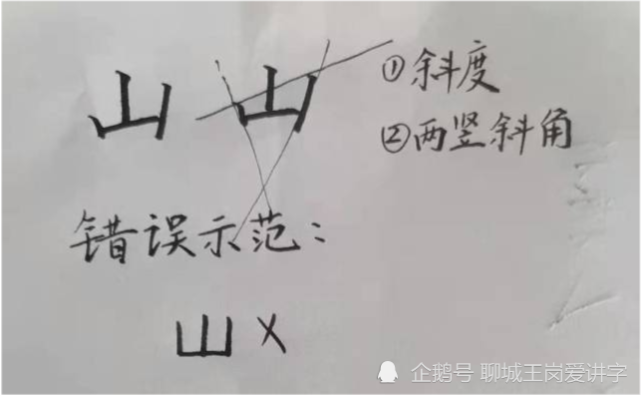 山 山 ①斜度
②两竖斜角
错误示范：
山 ×
企鹅号 聊城王岗爱讲字